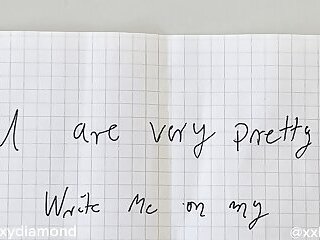 are very pretty
Write me on my
xydiamond
@xx